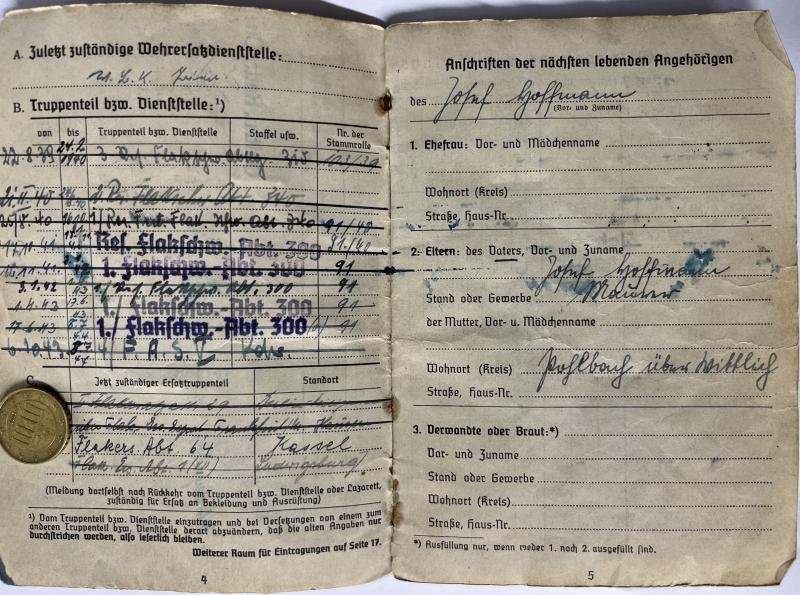 A. Zuletzt zuständige Wehrersatzdienststelle:
W. B. K.
B. Truppenteil bzw. Dienststelle:¹)
von bis Truppenteil bzw. Dienststelle Staffel usw. Nr. der Stammrolle
22.8.39 24.2. 1940 3. Res. Flakschw. Abtlg. 193/39
25/8.40 1/ Flak. Abt. 91/40
Res. Flakschw.-Abt. 300 91/40
1. Flakschw.-Abt. 300 91
3.1.42 1/ Abt. 300 91
1.4.43 17.6. 43. 1./ Flakschw-Abt. 300 91
17.6.43 1./ Flakschw.-Abt. 300 91
6.10.43
C. Jetzt zuständiger Ersatztruppenteil Standort
Frankfurt
Flakers Abt. 64 Kassel
Ludwigsburg
(Meldung dortselbst nach Rückkehr vom Truppenteil bzw. Dienststelle oder Lazarett,
zuständig für Ersatz an Bekleidung und Ausrüstung)
¹) Vom Truppenteil bzw. Dienststelle einzutragen und bei Versetzungen von einem zum
anderen Truppenteil bzw. Dienststelle derart abzuändern, daß die alten Angaben nur
durchstrichen werden, also leserlich bleiben.
Weiterer Raum für Eintragungen auf Seite 17.
4
Anschriften der nächsten lebenden Angehörigen
des Josef Hoffmann
(Vor- und Zuname)
1. Ehefrau: Vor- und Mädchenname
Wohnort (Kreis)
Straße, Haus-Nr.
2. Eltern: des Vaters, Vor- und Zuname
Josef Hoffmann
Stand oder Gewerbe Maurer
der Mutter, Vor- u. Mädchenname
Wohnort (Kreis) Pohlbach über Wittlich
Straße, Haus-Nr.
3. Verwandte oder Braut:*)
Vor- und Zuname
Stand oder Gewerbe
Wohnort (Kreis)
Straße, Haus-Nr.
*) Ausfüllung nur, wenn weder 1. noch 2. ausgefüllt sind.
5